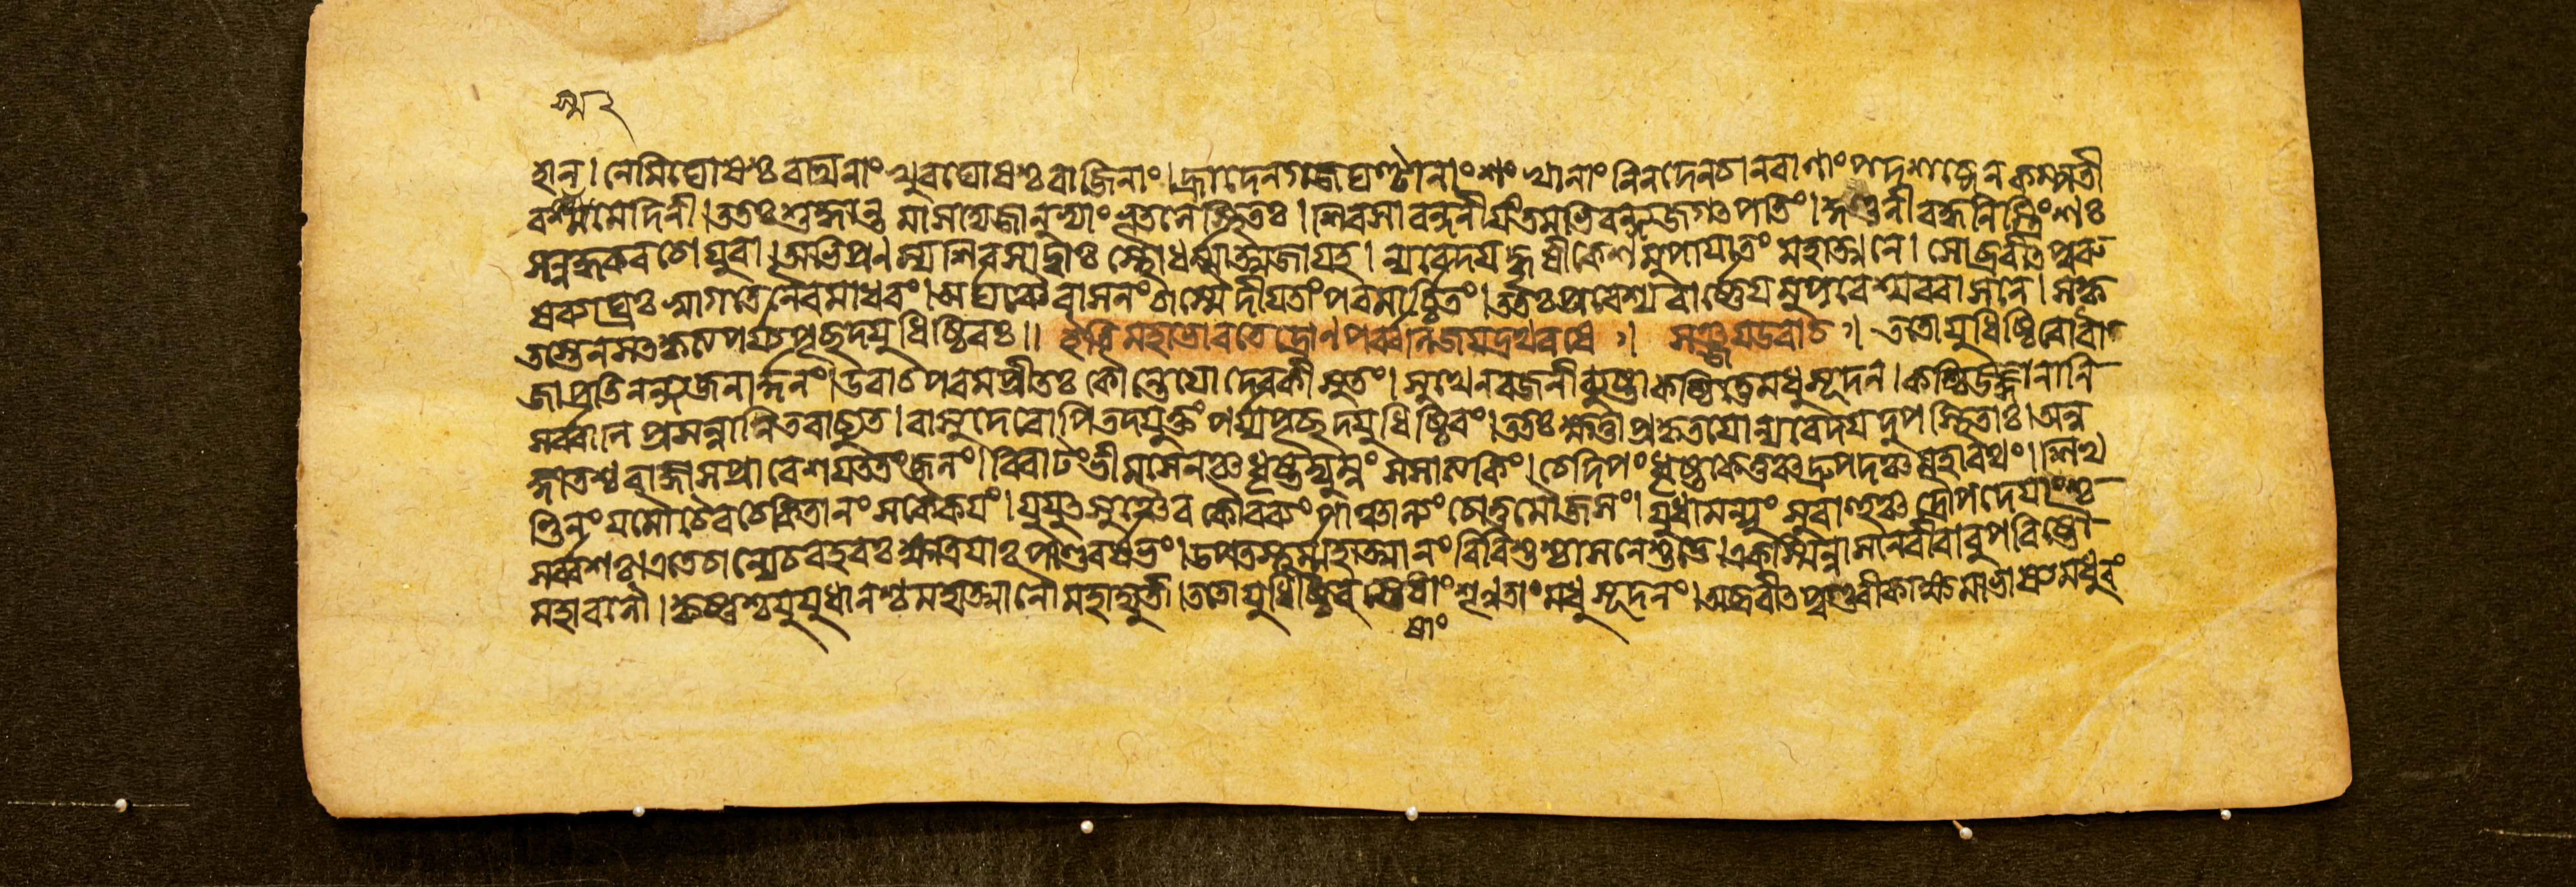 হান্। নেমিঘোষশ্চ রথিনাং খুরঘোষশ্চ বাজিনাং। হ্রাদেন গজঘণ্টানাং শংখানাং নিনদেন চ নরাণাং পদশব্দেন কম্পতী
মেদিনী। ততঃ শুদ্ধান্তমাসাদ্য জানুভ্যাং ভূতলে স্থিতঃ। শিরসা বন্দনীয়ং তমভিবন্দ্য জগৎপতিং। কুণ্ডলী বদ্ধনিস্ত্রিংশঃ
সন্নদ্ধকবচো যুবা। অভিপ্রণম্য শিরসা দ্বাঃস্থো ধর্ম্মাত্মজায় হ। ন্যবেদয়দ্ধৃষীকেশমুপায়াতং মহাত্মনে। সোব্রবীৎ পুরু
ষব্যাঘ্রঃ স্বাগতেনৈব মাধবং। অর্ঘ্যঞ্চৈবাসনং চাস্মৈ দীয়তাং পরমার্চ্চিতং। ততঃ প্রবেশ্য বার্ষ্ণেয়মুপবেশ্য বরাসনে। সৎকৃ
যুধিষ্ঠিরঃ॥ ইতি মহাভারতে দ্রোণপর্ব্বনি জয়দ্রথবধে ॥ সঞ্জয় উবাচ ॥ ততো যুধিষ্ঠিরো রা
জা প্রতিনন্দ্য জনার্দ্দনং। উবাচ পরমপ্রীতঃ কৌন্তেয়ো দেবকীসুতং। সুখেন রজনী ব্যুষ্টা কচ্চিত্তে মধুসূদন। কচ্চিজ্জ্ঞানানি
সর্ব্বাণি প্রসন্নানি তবাচ্যুত। বাসুদেবোপি তদ্যুক্তং পর্য্যপৃচ্ছদ্যুধিষ্ঠিরং। ততঃ ক্ষত্তা প্রকৃতয়ো ন্যবেদয়দুপস্থিতাঃ। অনু
জ্ঞাতশ্চ রাজ্ঞা স প্রাবেশয়ত তং জনং। বিরাটং ভীমসেনঞ্চ ধৃষ্টদ্যুম্নং সসাত্যকিং। চেদিপং ধৃষ্টকেতুঞ্চ দ্রুপদঞ্চ মহারথং। শিখ
ণ্ডিনং যমৌ চৈব চেকিতানং সকেকয়ং। যুযুৎসুঞ্চৈব কৌরব্যং পাঞ্চাল্যং চোত্তমৌজসং। যুধামন্যুং সুবাহুঞ্চ দ্রৌপদেয়াংশ্চ
সর্ব্বশঃ। এতে চান্যে চ বহবঃ ক্ষত্রিয়াঃ পাণ্ডবর্ষভং। উপতস্থুর্মহাত্মানং বিবিশুশ্চাসনেষু তে। একস্মিন্নাসনে বীরাবুপবিষ্টৌ
মহাবলৌ। কৃষ্ণশ্চ যুযুধানশ্চ মহাত্মানৌ মহাদ্যুতী। ততো যুধিষ্ঠিরস্তেষাং শৃণ্বতাং মধুসূদনং। অব্রবীৎ পুণ্ডরীকাক্ষমাভাষ্য মধুরং
ষাং